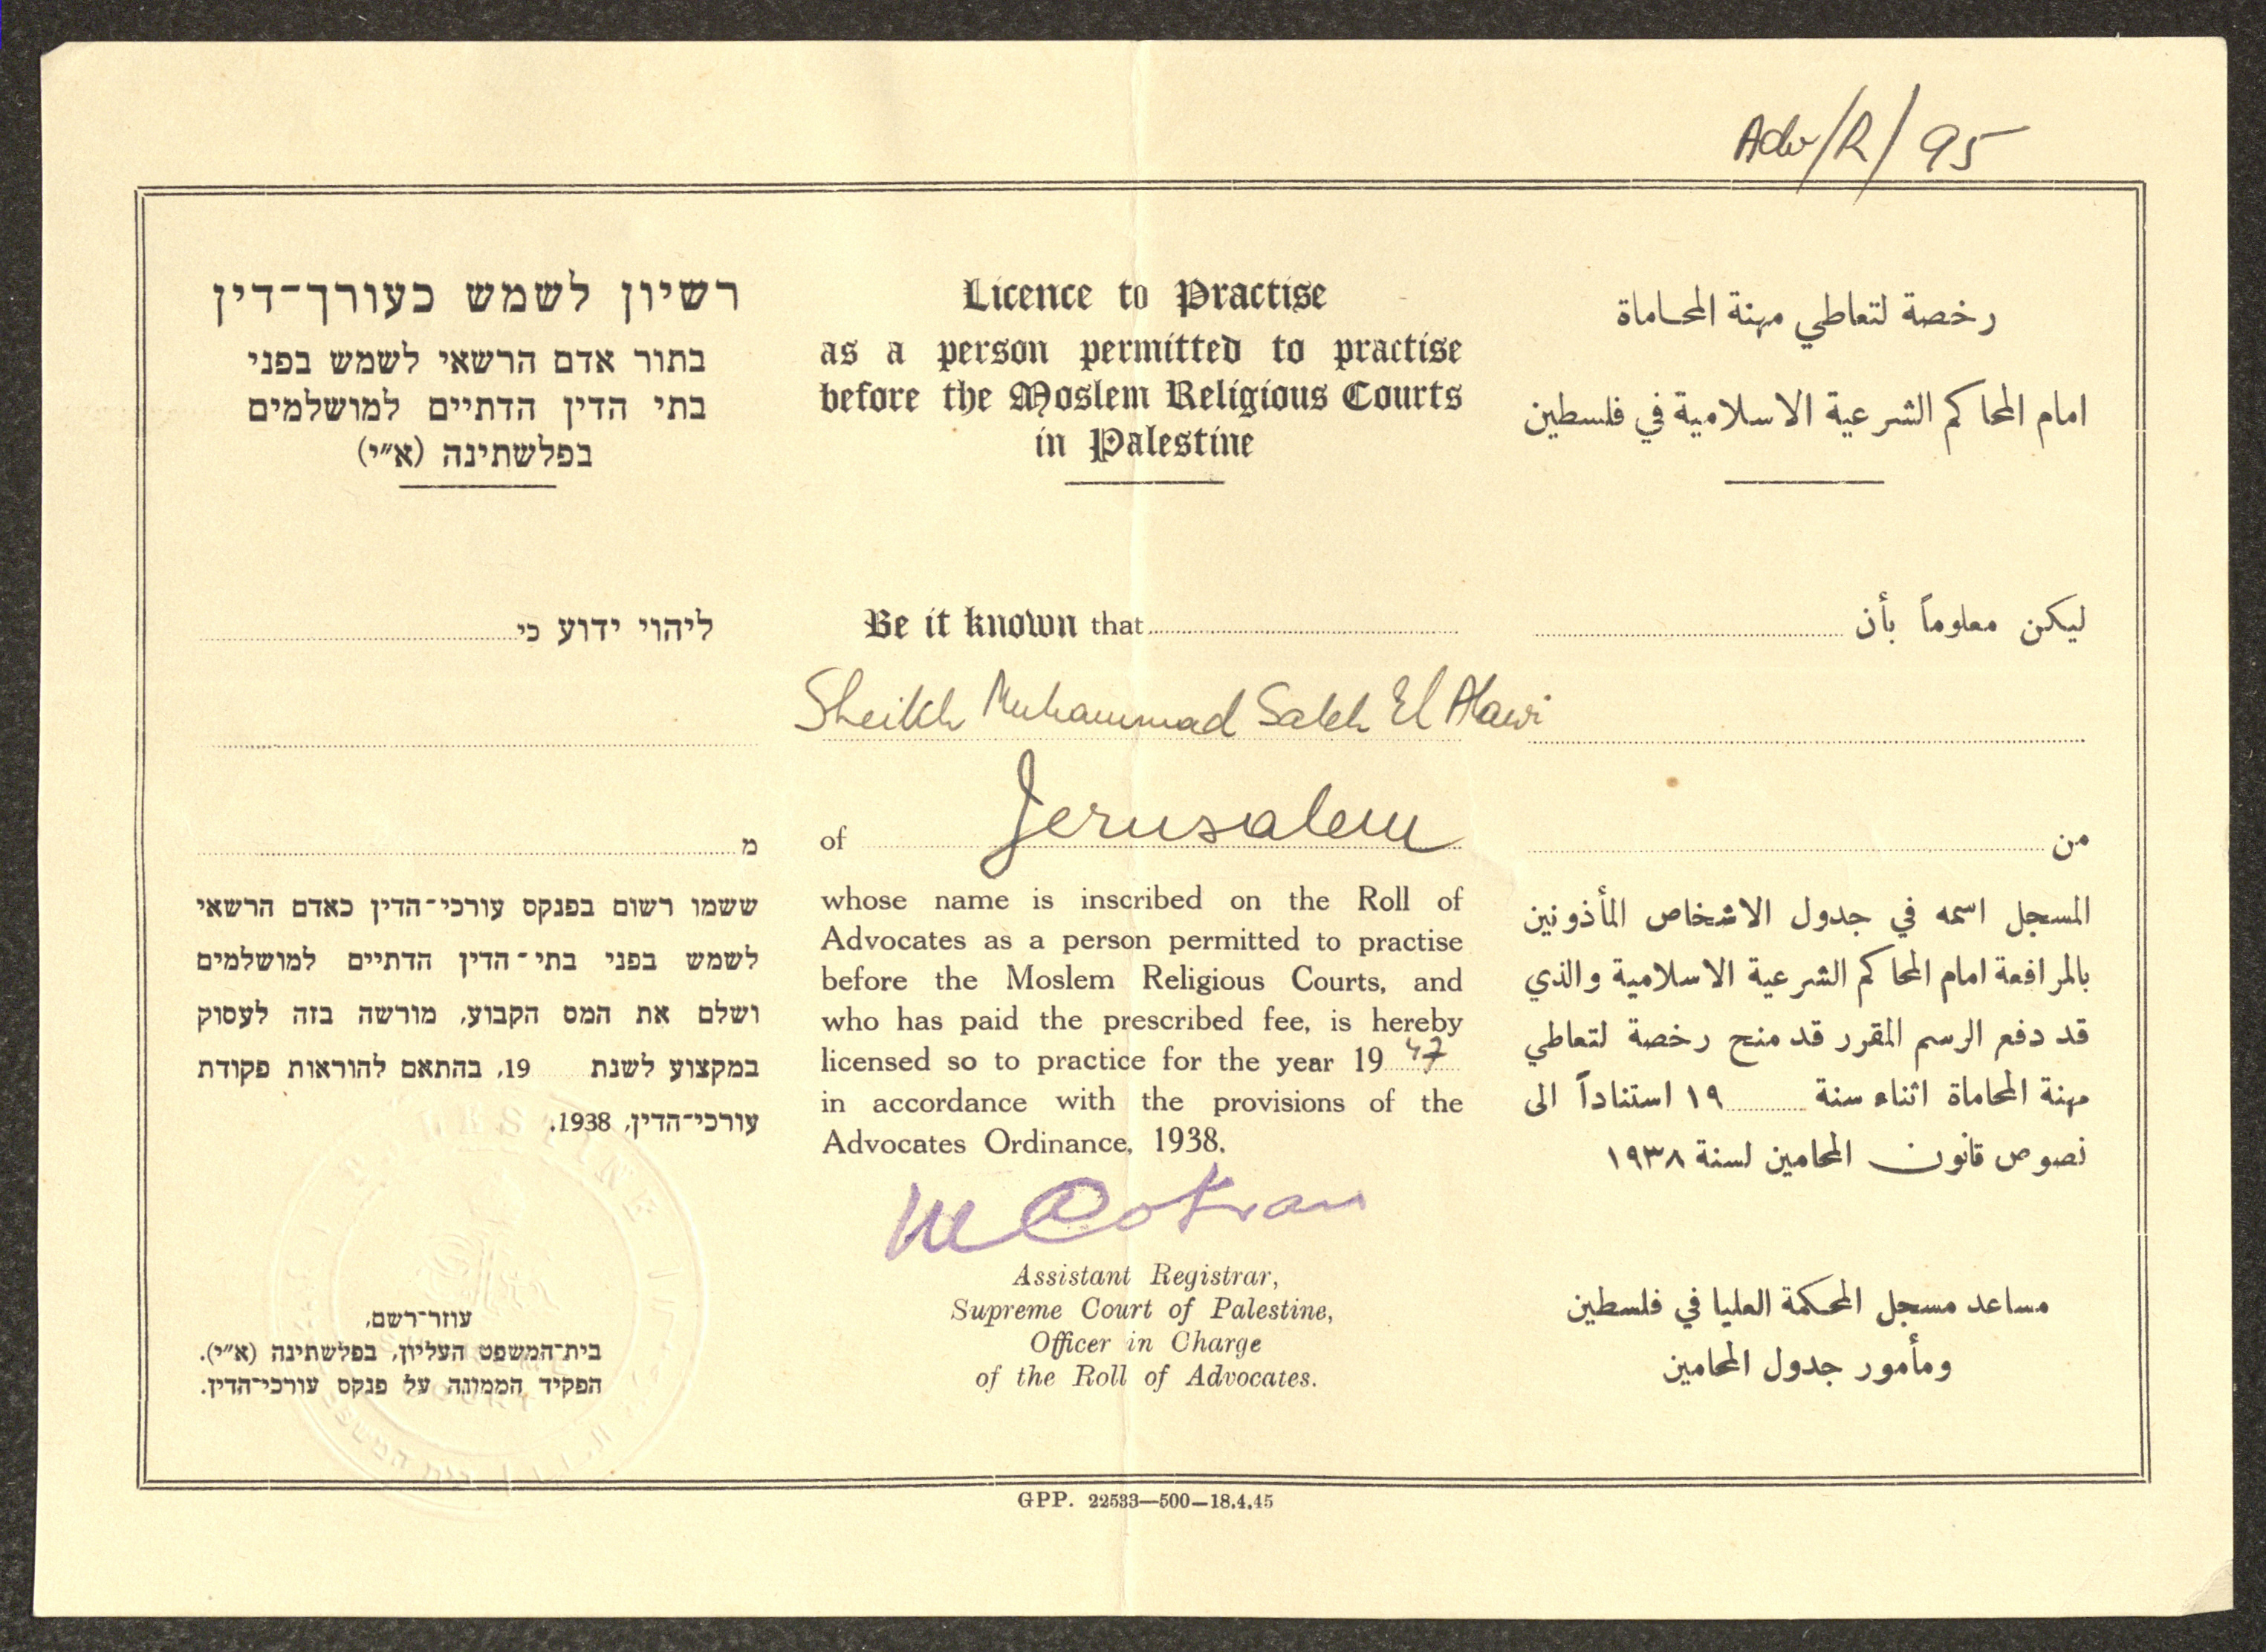 Adv/R/95
רשיון לשמש כעורך־דין
בתור אדם הרשאי לשמש בפני
בתי הדין הדתיים למושלמים
בפלשתינה (א״י)
ליהוי ידוע כי
מ
ששמו רשום בפנקס עורכי־הדין כאדם הרשאי
לשמש בפני בתי־הדין הדתיים למושלמים
ושלם את המס הקבוע, מורשה בזה לעסוק
במקצוע לשנת 19, בהתאם להוראות פקודת
עורכי־הדין, 1938.
עוזר־רשם,
בית־המשפט העליון, בפלשתינה (א״י).
הפקיד הממונה על פנקס עורכי־הדין.
Licence to Practise
as a person permitted to practise
before the Moslem Religious Courts
in Palestine
Be it known that
Sheikh Muhammad Saleh El Alawi
of Jerusalem
whose name is inscribed on the Roll of
Advocates as a person permitted to practise
before the Moslem Religious Courts, and
who has paid the prescribed fee, is hereby
licensed so to practice for the year 1947
in accordance with the provisions of the
Advocates Ordinance, 1938.
Assistant Registrar,
Supreme Court of Palestine,
Officer in Charge
of the Roll of Advocates.
رخصة لتعاطي مهنة المحاماة
امام المحاكم الشرعية الاسلامية في فلسطين
ليكن معلوماً بأن
من
المسجل اسمه في جدول الاشخاص المأذونين
بالمرافعة امام المحاكم الشرعية الاسلامية والذي
قد دفع الرسم المقرر قد منح رخصة لتعاطي
مهنة المحاماة اثناء سنة ١٩ استناداً الى
نصوص قانون المحامين لسنة ١٩٣٨
مساعد مسجل المحكمة العليا في فلسطين
ومأمور جدول المحامين
PALESTINE
GPP. 22533—500—18.4.45